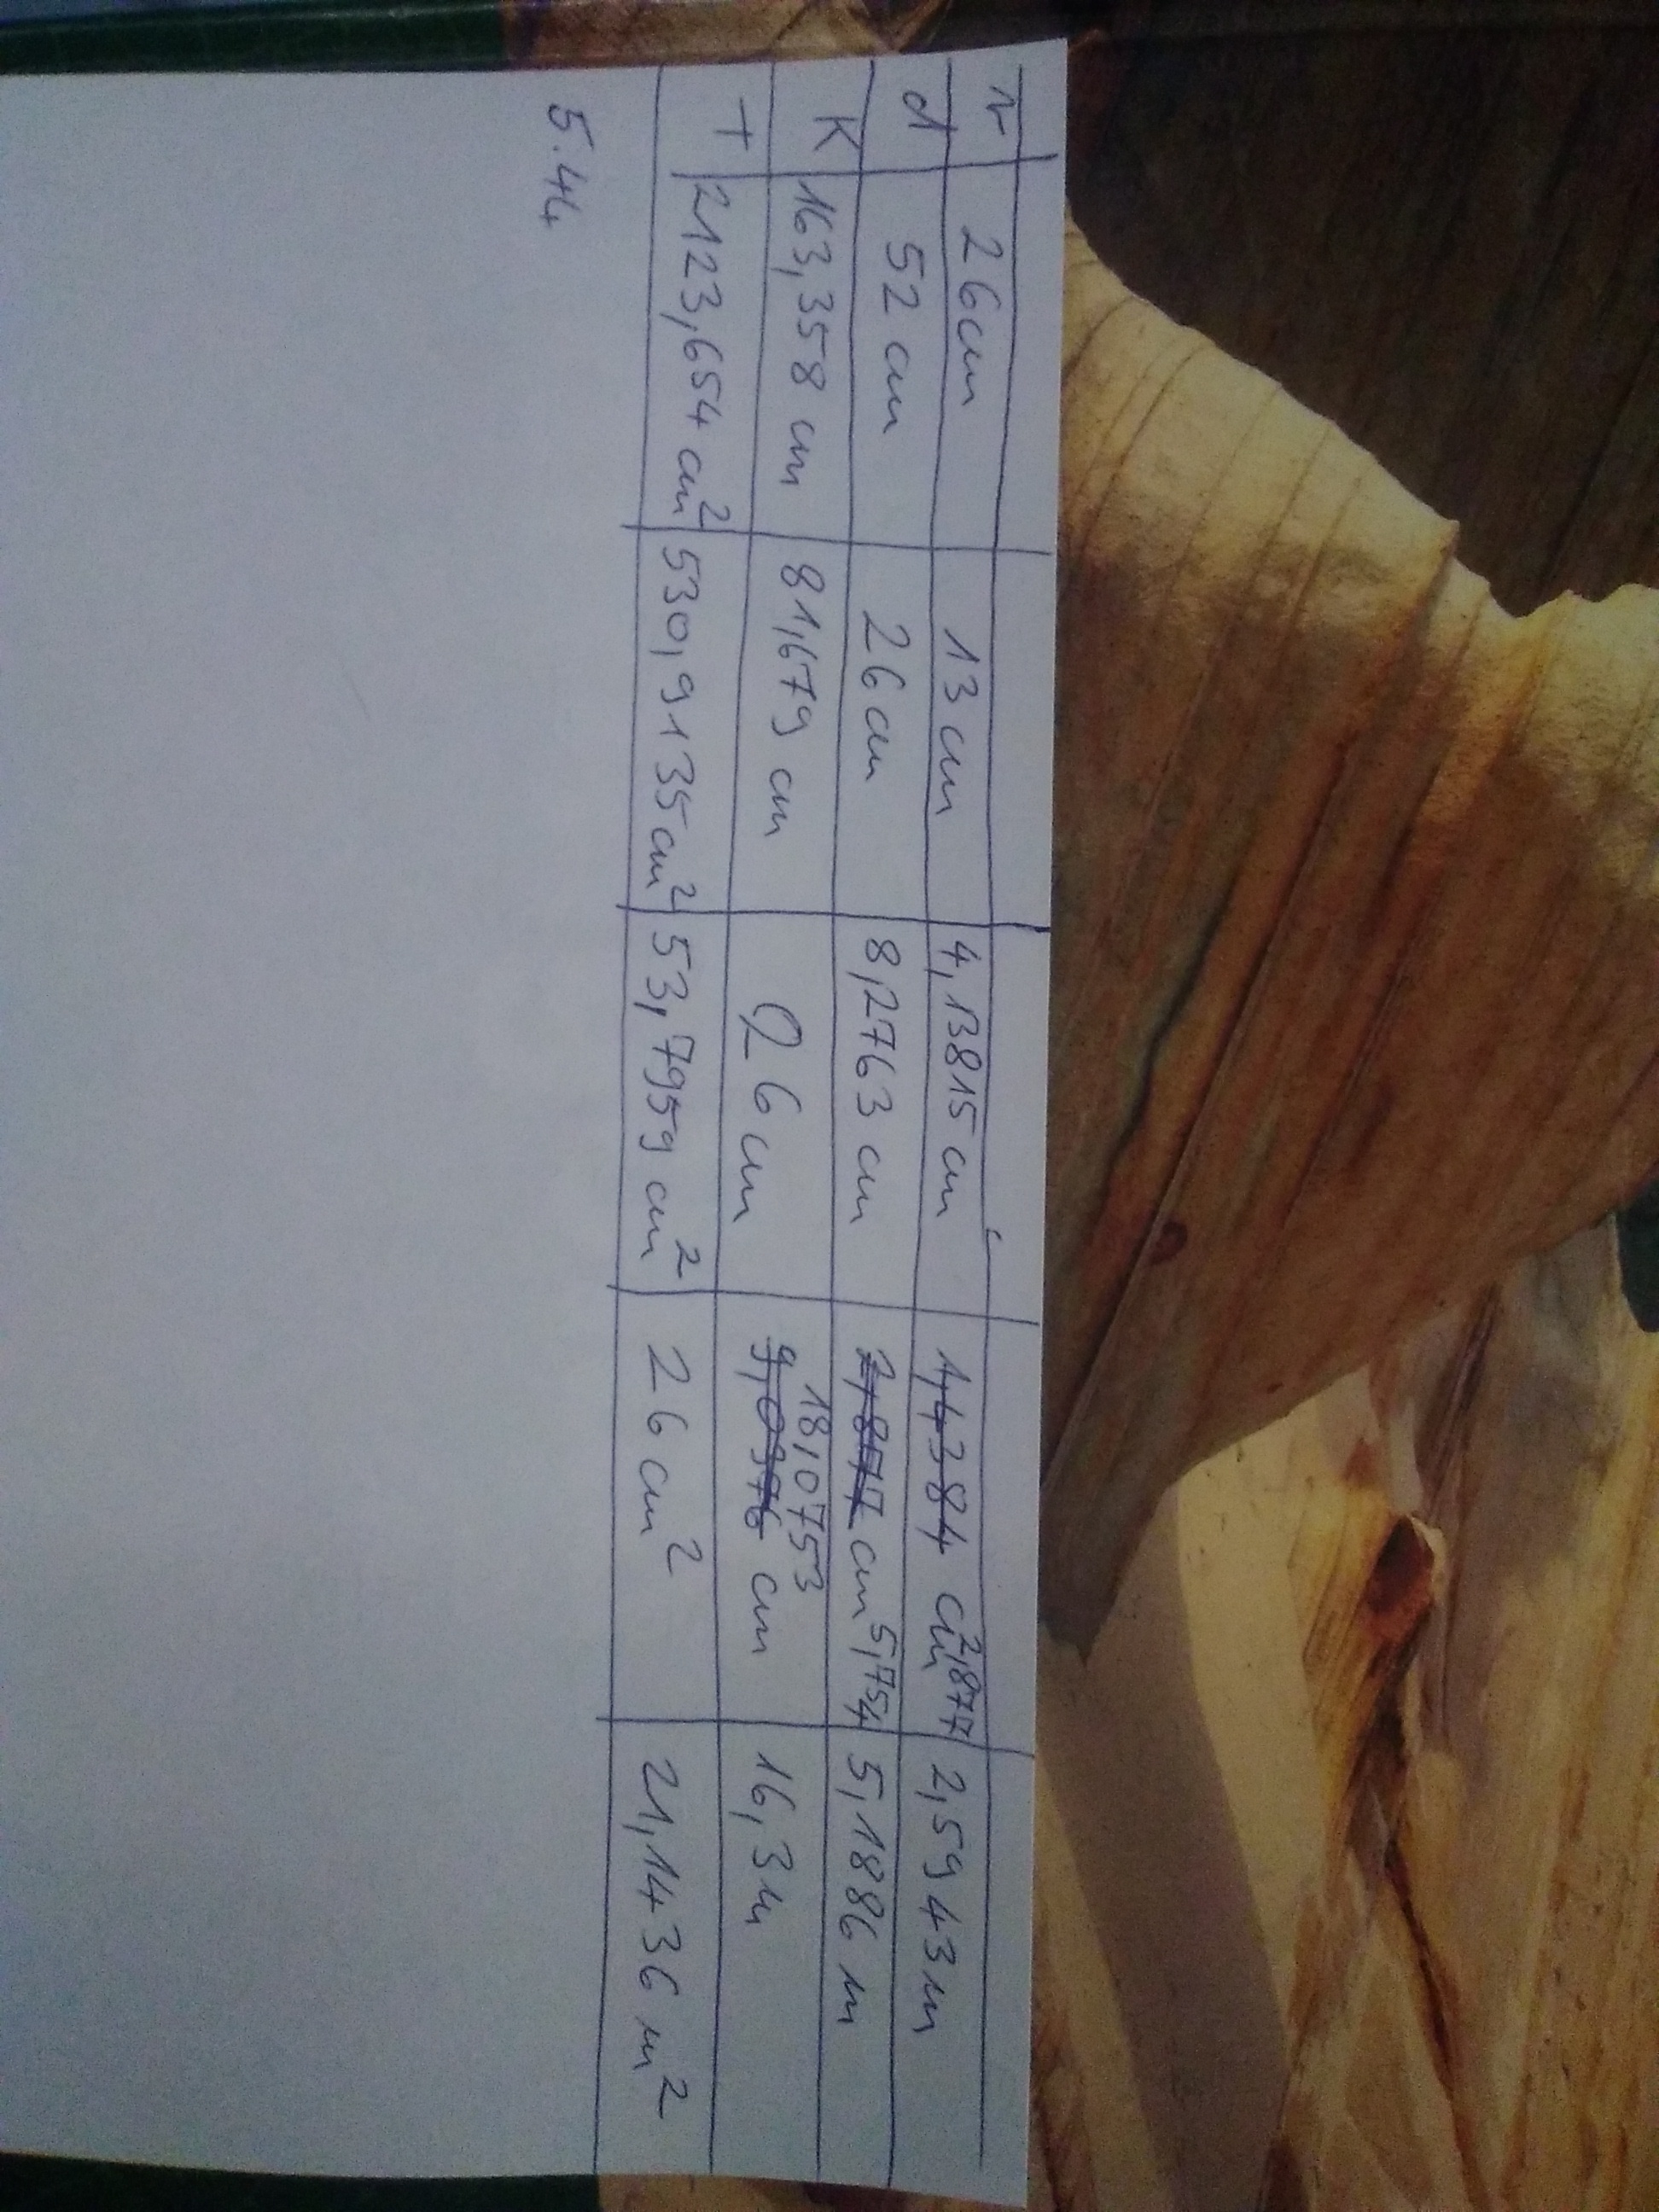 r 26cm 13cm 4,13815cm 1,4384 cm 2,877 2,5943m
d 52 cm 26cm 8,2763cm 2,877 cm 5,754 5,1886m
K 163,358 cm 81,679 cm 26cm 9,0376 18,0753 cm 16,3m
T 2123,654cm² 530,9135cm² 53,7959cm² 26cm² 21,1436m²
5.44